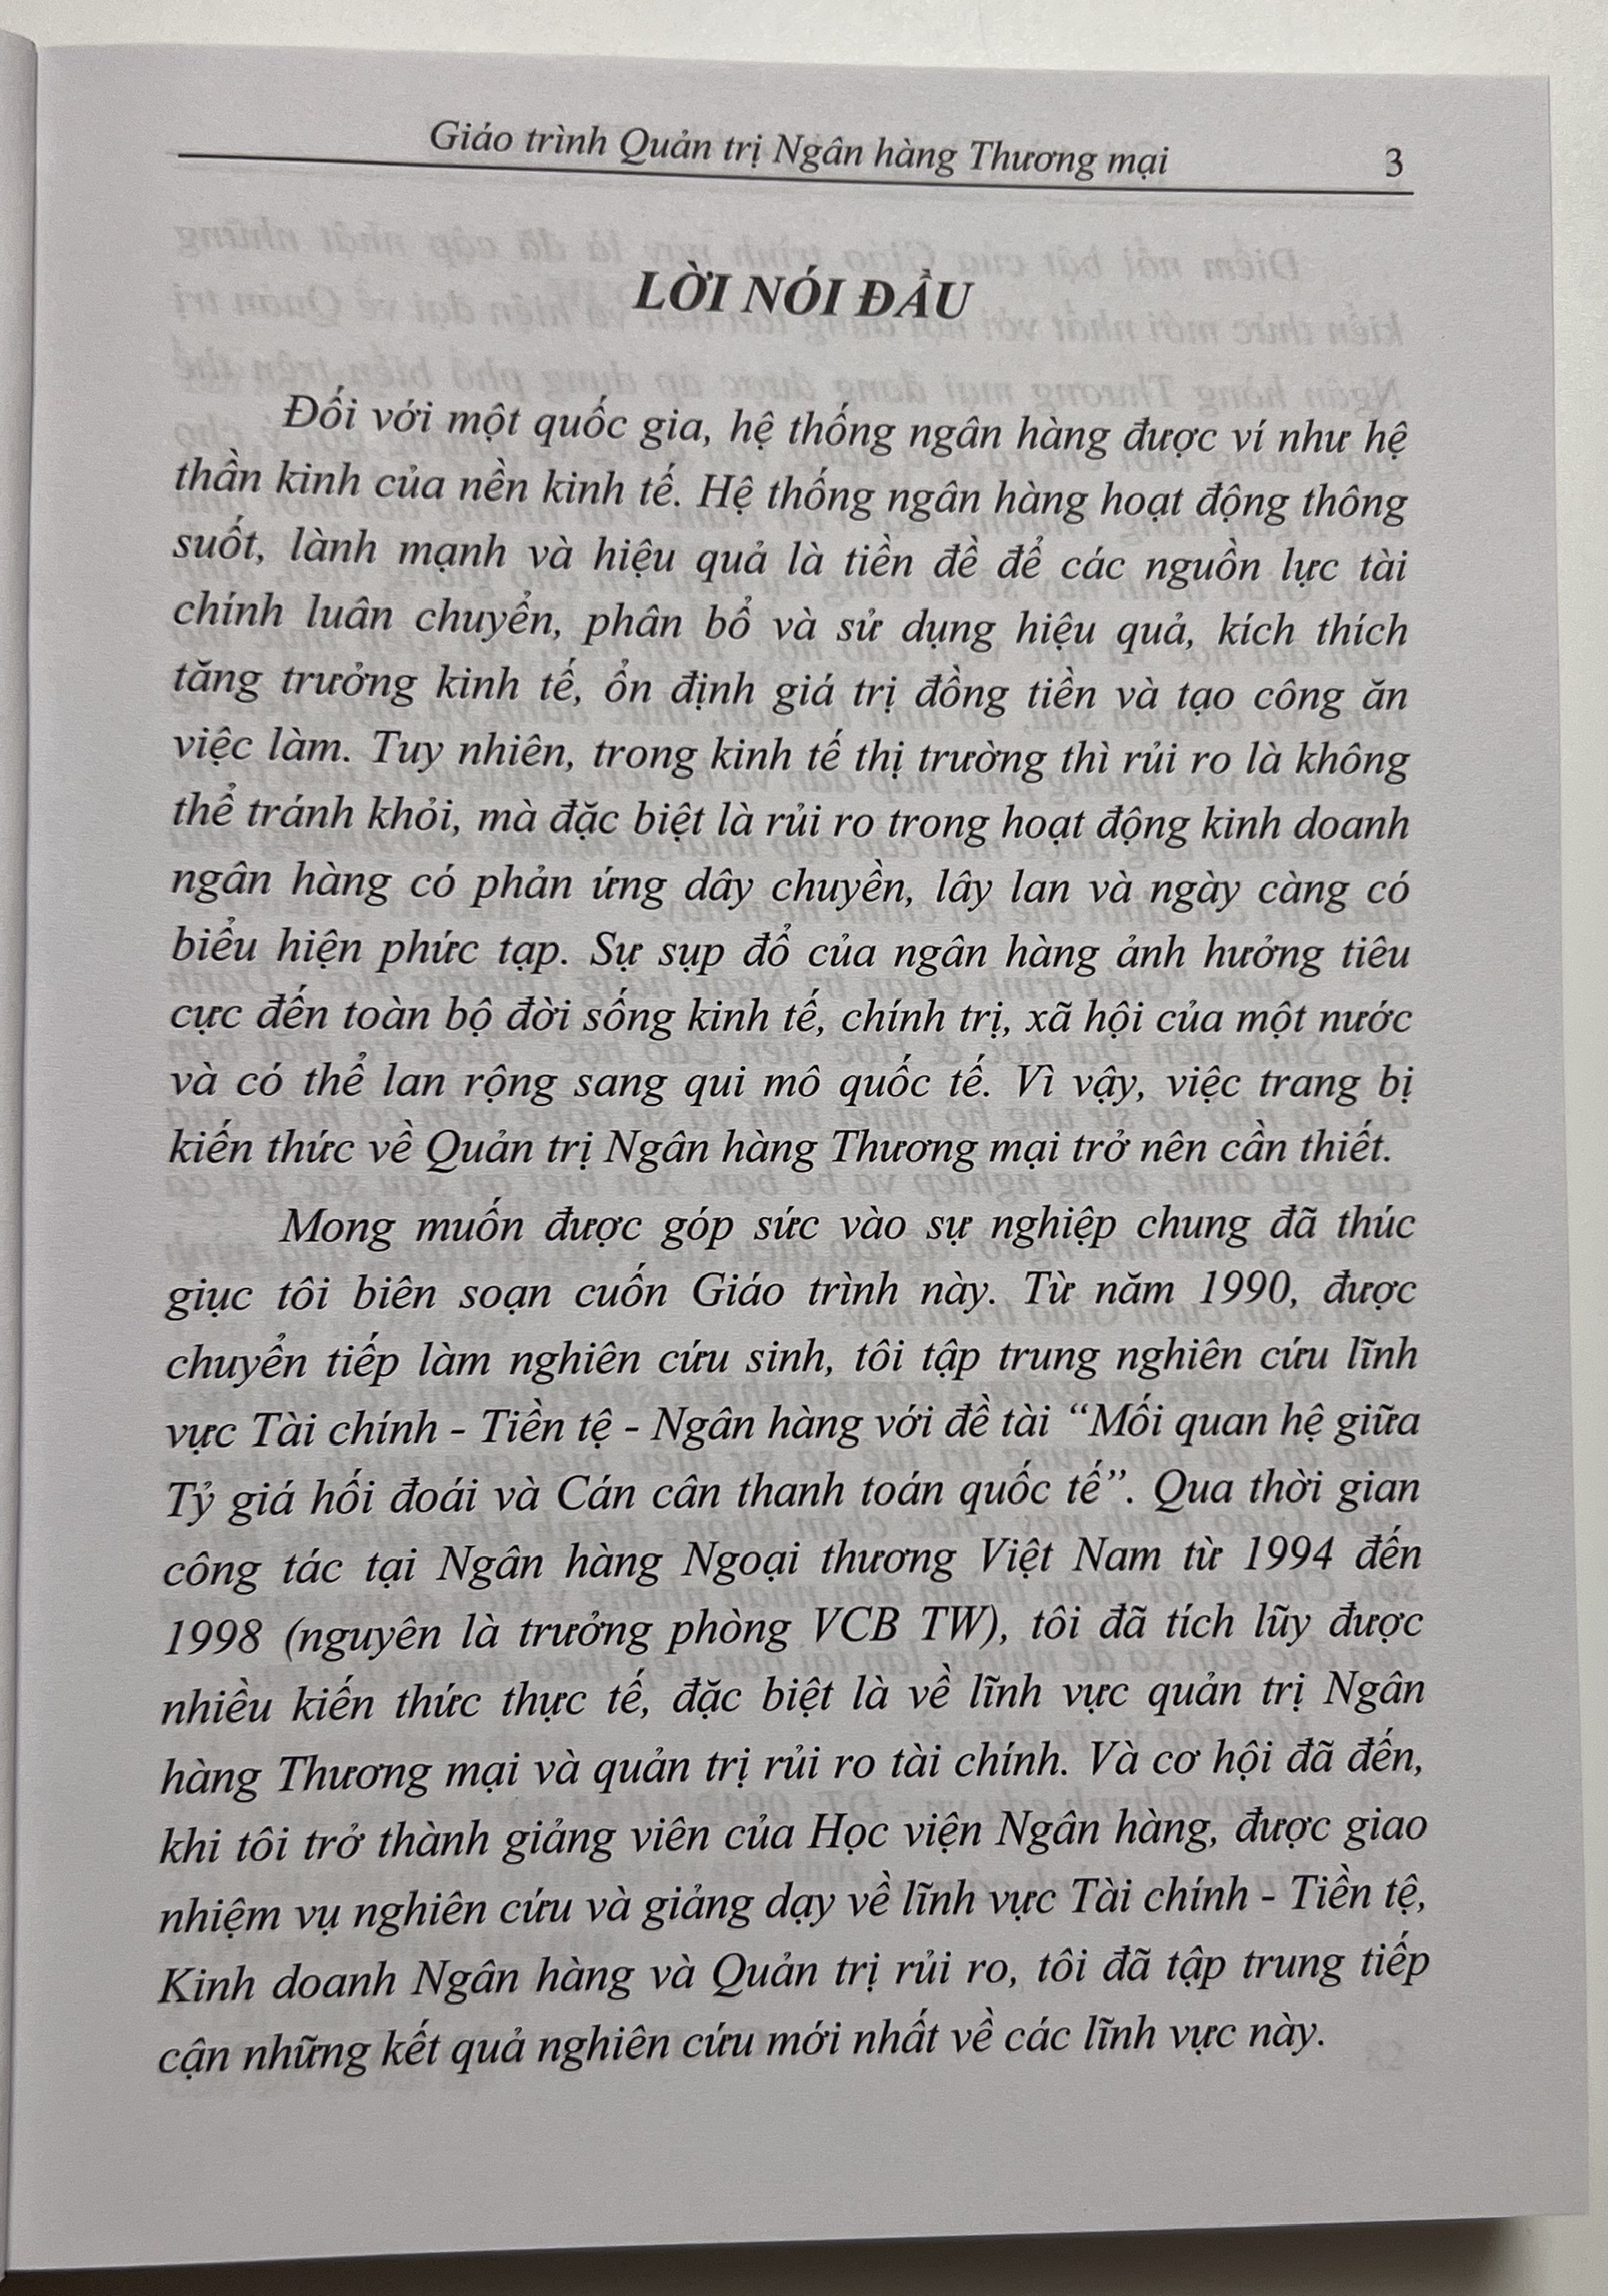 Giáo trình Quản trị Ngân hàng Thương mại 3
LỜI NÓI ĐẦU
Đối với một quốc gia, hệ thống ngân hàng được ví như hệ
thần kinh của nền kinh tế. Hệ thống ngân hàng hoạt động thông
suốt, lành mạnh và hiệu quả là tiền đề để các nguồn lực tài
chính luân chuyển, phân bổ và sử dụng hiệu quả, kích thích
tăng trưởng kinh tế, ổn định giá trị đồng tiền và tạo công ăn
việc làm. Tuy nhiên, trong kinh tế thị trường thì rủi ro là không
thể tránh khỏi, mà đặc biệt là rủi ro trong hoạt động kinh doanh
ngân hàng có phản ứng dây chuyền, lây lan và ngày càng có
biểu hiện phức tạp. Sự sụp đổ của ngân hàng ảnh hưởng tiêu
cực đến toàn bộ đời sống kinh tế, chính trị, xã hội của một nước
và có thể lan rộng sang qui mô quốc tế. Vì vậy, việc trang bị
kiến thức về Quản trị Ngân hàng Thương mại trở nên cần thiết.
Mong muốn được góp sức vào sự nghiệp chung đã thúc
giục tôi biên soạn cuốn Giáo trình này. Từ năm 1990, được
chuyển tiếp làm nghiên cứu sinh, tôi tập trung nghiên cứu lĩnh
vực Tài chính - Tiền tệ - Ngân hàng với đề tài “Mối quan hệ giữa
Tỷ giá hối đoái và Cán cân thanh toán quốc tế”. Qua thời gian
công tác tại Ngân hàng Ngoại thương Việt Nam từ 1994 đến
1998 (nguyên là trưởng phòng VCB TW), tôi đã tích lũy được
nhiều kiến thức thực tế, đặc biệt là về lĩnh vực quản trị Ngân
hàng Thương mại và quản trị rủi ro tài chính. Và cơ hội đã đến,
khi tôi trở thành giảng viên của Học viện Ngân hàng, được giao
nhiệm vụ nghiên cứu và giảng dạy về lĩnh vực Tài chính - Tiền tệ,
Kinh doanh Ngân hàng và Quản trị rủi ro, tôi đã tập trung tiếp
cận những kết quả nghiên cứu mới nhất về các lĩnh vực này.